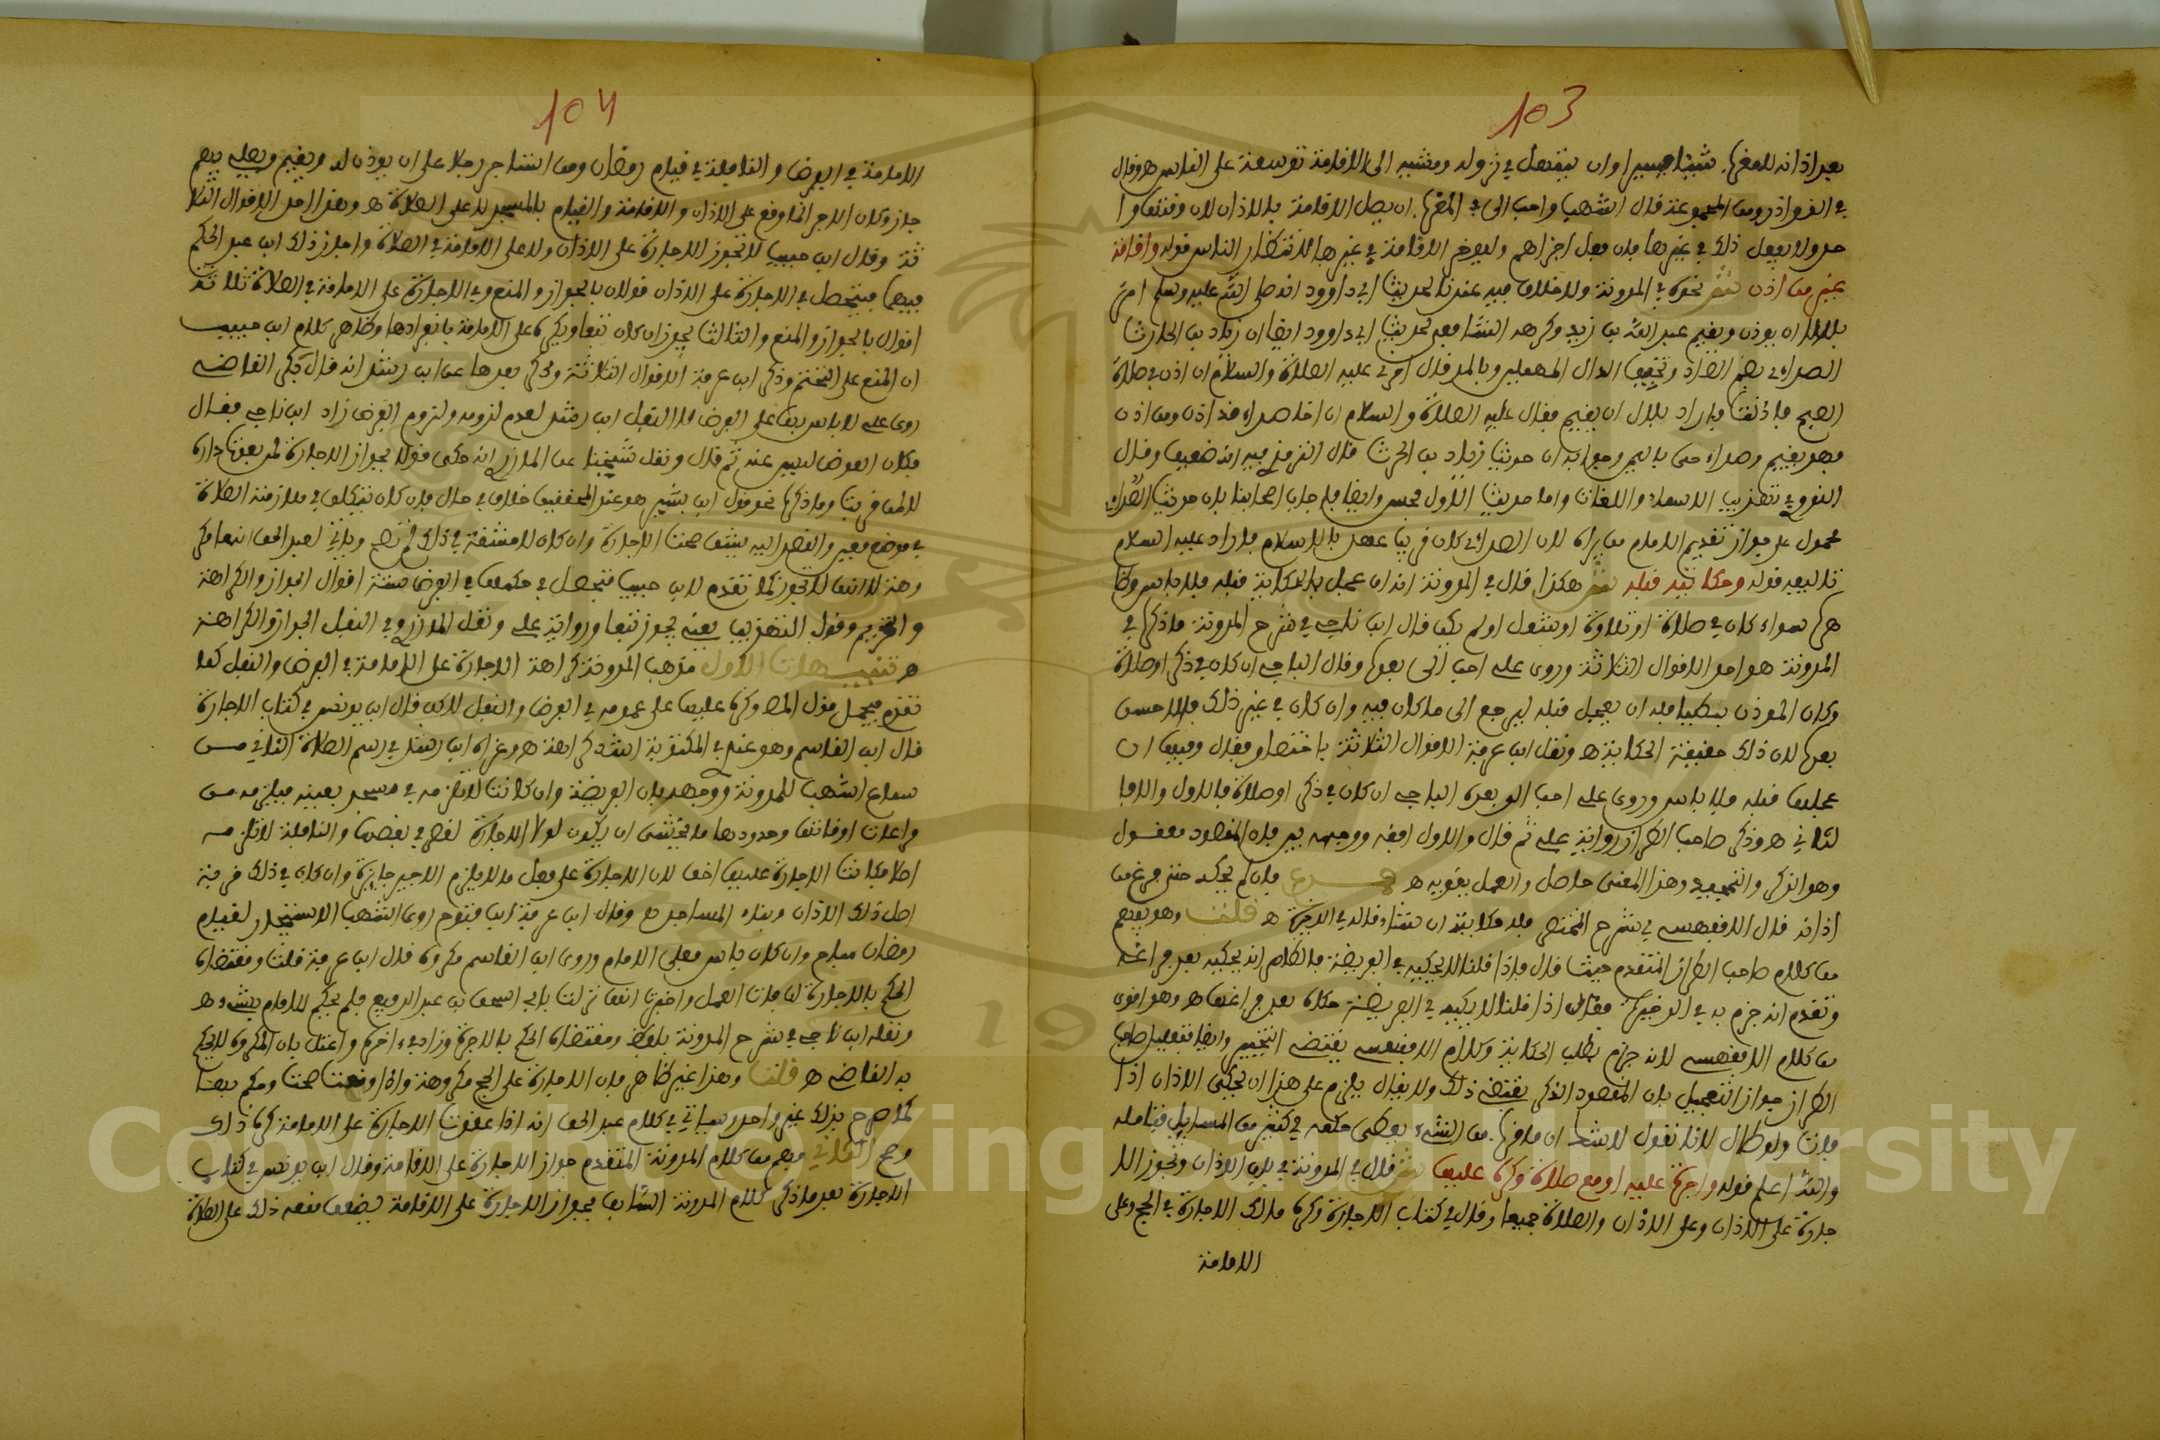 103
بعد اذانه للمغرب شيئا يسيرا وان يتمهل في نزوله ومشيه الى الاقامة توسعة على الناس ه وقال
في الفواذر ومن المجموعة قال اشهب واحب الي في المغرب ان يصل الاقامة بالاذان لان وقتها وا
حد ولا يفعل ذلك في غيرها فان فعل اجزاهم وليوخر الاقامة في غيرها لانتظار الناس قوله واقامة
غير من اذن ش نحوه في المدونة ولا خلاف فيه عندنا لحديث ابي داوود انه صلى الله عليه وسلم امر
بلالا ان يوذن ويقيم عبد الله بن زيد وكرهه الشافعي لحديث ابي داوود ايضا ان زياد بن الحارث
الصداءي بضم الصاد وتخفيف الدال المهملين وبالمد قال امرني عليه الصلاة والسلام ان اذن في صلاة
الصبح فاذنت فاراد بلال ان يقيم فقال عليه الصلاة والسلام ان اخا صداء قد اذن ومن اذن
فهو يقيم وصداء حي باليمن وجوابه ان حديث زياد بن الحرث قال الترمذي فيه انه ضعيف وقال
النووي في تهذيب الاسماء واللغات واما حديث الاول فحسن وايضا فاجاب اصحابنا بان حديث الصداءي
محمول على جواز تقديم الامام من يراه لان الصداءي كان قريب عهد بالاسلام فاراد عليه السلام
تاليفه قوله وحكايته قبله ش هكذا قال في المدونة انه ان عجل بالحكاية قبله فلا باس وظا
هره سواء كان في صلاة او تلاوة او شغل او لم يكن قال ابن ناجي في شرح المدونة ما ذكره في
المدونة هو احد الاقوال الثلاثة وروى علي احب الي بعده وقال الباجي ان كان في ذكر او صلاة
وكان الموذن بطيئا فله ان يعجل قبله ليرجع الى ما كان فيه وان كان في غير ذلك فالاحسن
بعده لان ذلك حقيقة الحكاية ه ونقل ابن عرفة الاقوال الثلاثة باختصار فقال وفيها ان
عجلها قبله فلا باس وروى علي احب الي بعده الباجي ان كان في ذكر او صلاة فالاول والا فا
لثاني ه وذكر صاحب الطراز رواية علي ثم قال والاول افقه ووجهه بين فان المقصود معقول
وهو الذكر والتمجيد وهذا المعنى حاصل والعمل بفوره ه فــرع فان لم يحكه حتى فرغ من
اذانه قال الاقفهسي في شرح المختصر فله حكايته ان شاء قاله في الذخيرة ه قلت وهو يفهم
من كلام صاحب الطراز المتقدم حيث قال فاذا قلنا لا يحكيه في الفريضة فالظاهر انه يحكيه بعد فراغه
وتقدم انه جزم به في الذخيرة فقال اذا قلنا لا يحكيه في الفريضة حكاه بعد فراغها ه وهو اقوى
من كلام الاقفهسي لانه جزم بطلب الحكاية وكلام الاقفهسي يقتضي التخيير وايضا فتعليل صاحب
الطراز جواز التعجيل بان المقصود الذكر يقتضي ذلك ولا يقال يلزم على هذا ان يحكي الاذان اذا
فات ولو طال لانا نقول لا شك ان ما قرب من الشيء يعطى حكمه في كثير من المسايل فتامله
والله اعلم قوله واجرة عليه او مع صلاة وكره عليها ش قال في المدونة في باب الاذان وتجوز الا
جارة على الاذان وعلى الاذان والصلاة جميعا وقال في كتاب الاجارة وكره مالك الاجارة في الحج وعلى
الامامة
104
الامامة في الفرض والنافلة في قيام رمضان ومن استاجر رجلا على ان يوذن له ويقيم ويصلي بهم
جاز وكان الاجر انما وقع على الاذان والاقامة والقيام بالمسجد لا على الصلاة ه وهذا احد الاقوال الثلا
ثة وقال ابن حبيب لا تجوز الاجارة على الاذان ولا على الاقامة في الصلاة واجاز ذلك ابن عبد الحكم
فيهما فيتحصل في الاجارة على الاذان قولان بالجواز والمنع وفي الاجارة على الامامة في الصلاة ثلاثة
اقوال بالجواز والمنع والثالث يجوز ان كان تبعا ويكره على الامامة بانفرادها وظاهر كلام ابن حبيب
ان المنع على التحتم وذكر ابن عرفة الاقوال الثلاثة وحكى بعدها عن ابن رشد انه قال حكى القاضي
روى علي لا باس بها على الفرض لا النفل ابن رشد لعدم لزومه ولزوم الفرض زاد ابن ناجي فقال
فكان العوض ليس عنه ثم قال ونقل شيخنا عن المازري انه حكى قولا بجواز الاجارة لمن بعدت داره
لا لمن قربت وما ذكره نحو قول ابن بشير هو عند المحققين خلاف في حال فان كان يتكلف في ملازمته الصلاة
في موضع معين والقصد اليه بشقة صحت الاجارة وان كان لا مشقة في ذلك لم تصح وياتي لعبد الحق انها تكر
وهذه لا انها لا تجوز كما تقدم لابن حبيب فتحصل في حكمها في الفرض ستة اقوال الجواز والكراهة
والتحريم وقول التهذيب يعني تجوز تبعا ورواية علي ونقل المازري وفي النفل الجواز والكراهة
ه تنبيــهات الاول مذهب المدونة كراهة الاجارة على الامامة في الفرض والنفل كما
تقدم فيحمل قول المص وكره عليها على عمومه في الفرض والنفل لاكن قال ابن يونس في كتاب الاجارة
قال ابن القاسم وهو عندي في المكتوبة اشد كراهة ه وعزاه ابن رشد في رسم الصلاة الثاني مــن
سماع اشهب للمدونة ووجهه بان الفريضة وان كانت لا تلزمه في مسجد بعينه فيلزمه من
مراعات اوقاتها وحدودها ما يخشى ان يكون لولا الاجارة لقصر في بعضها والنافلة لا تلزمــه
اصلا فكانت الاجارة عليها اخف لان الاجارة على فعل ما لا يلزم الاجير جايزة وان كان في ذلك قربة
اصل ذلك الاذان وبناء المساجد ه وقال ابن عرفة ابن فتوح روى اشهب الاستيجار لقيام
رمضان مباح وان كان باس فعلى الامام وروى ابن القاسم مكروه قال ابن عرفة قلت ومقتضاه
الحكم بالاجارة لها فات العمل واخبرت انها نزلت بابي اسحق بن عبد الرفيع فلم يحكم للامام بشيء ه
ونقله ابن ناجي في شرح المدونة بلفظ ومقتضاه الحكم بالاجرة وزاد في ءاخره واعتل بان المكروه لا يحكم
به القاضي ه قلت وهذا غير ظاهر فان الاجارة على الحج مكروهة واذا وقعت صحت وحكم بهــا
كما صرح بذلك غير واحد وسياتي في كلام عبد الحق انه اذا عقدت الاجارة على الامامة كره ذلك
وصح الثاني فهم من كلام المدونة المتقدم جواز الاجارة على الاقامة وقال ابن يونس في كتاب
الاجارة بعد ما ذكر كلام المدونة السابق فجواز الاجارة على الاقامة يضعف منعه ذلك على الصلاة